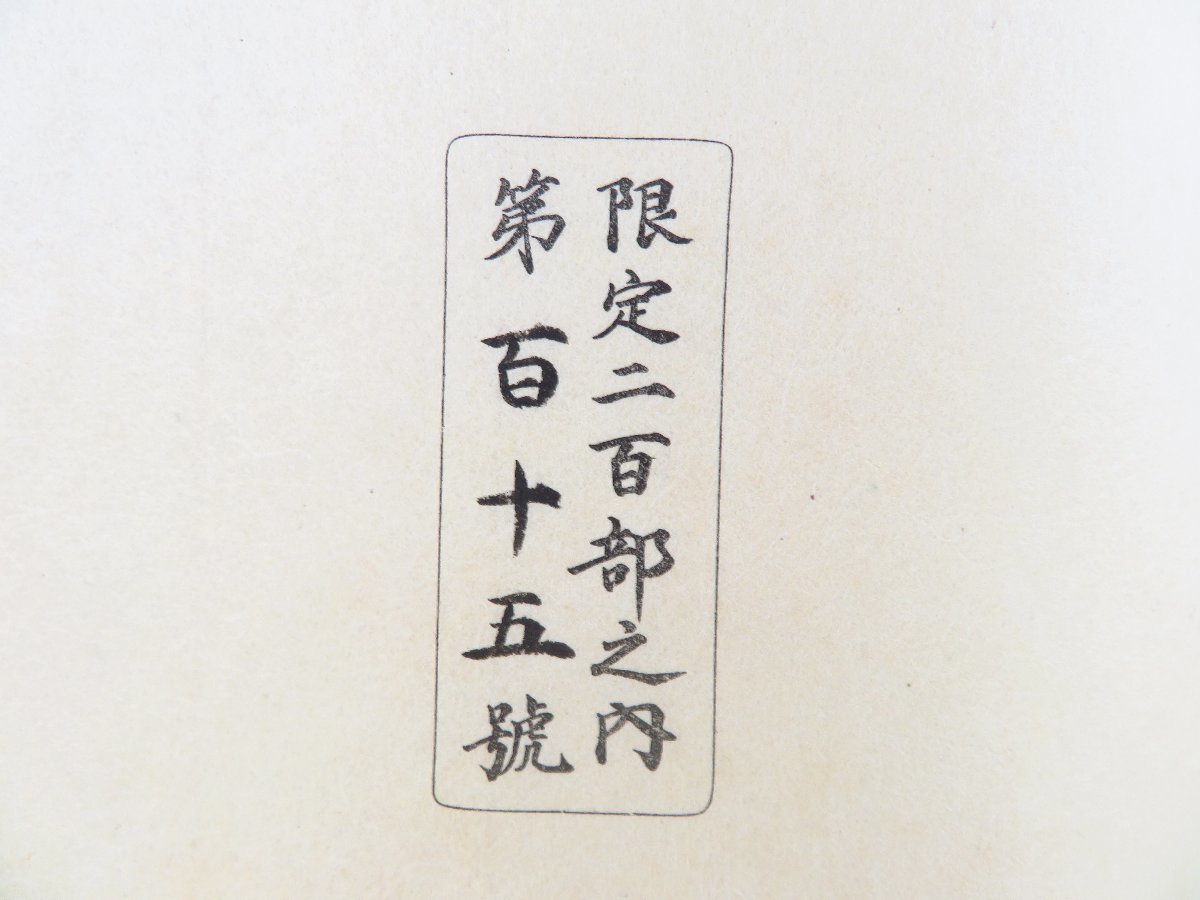 限定二百部之內
第百十五號